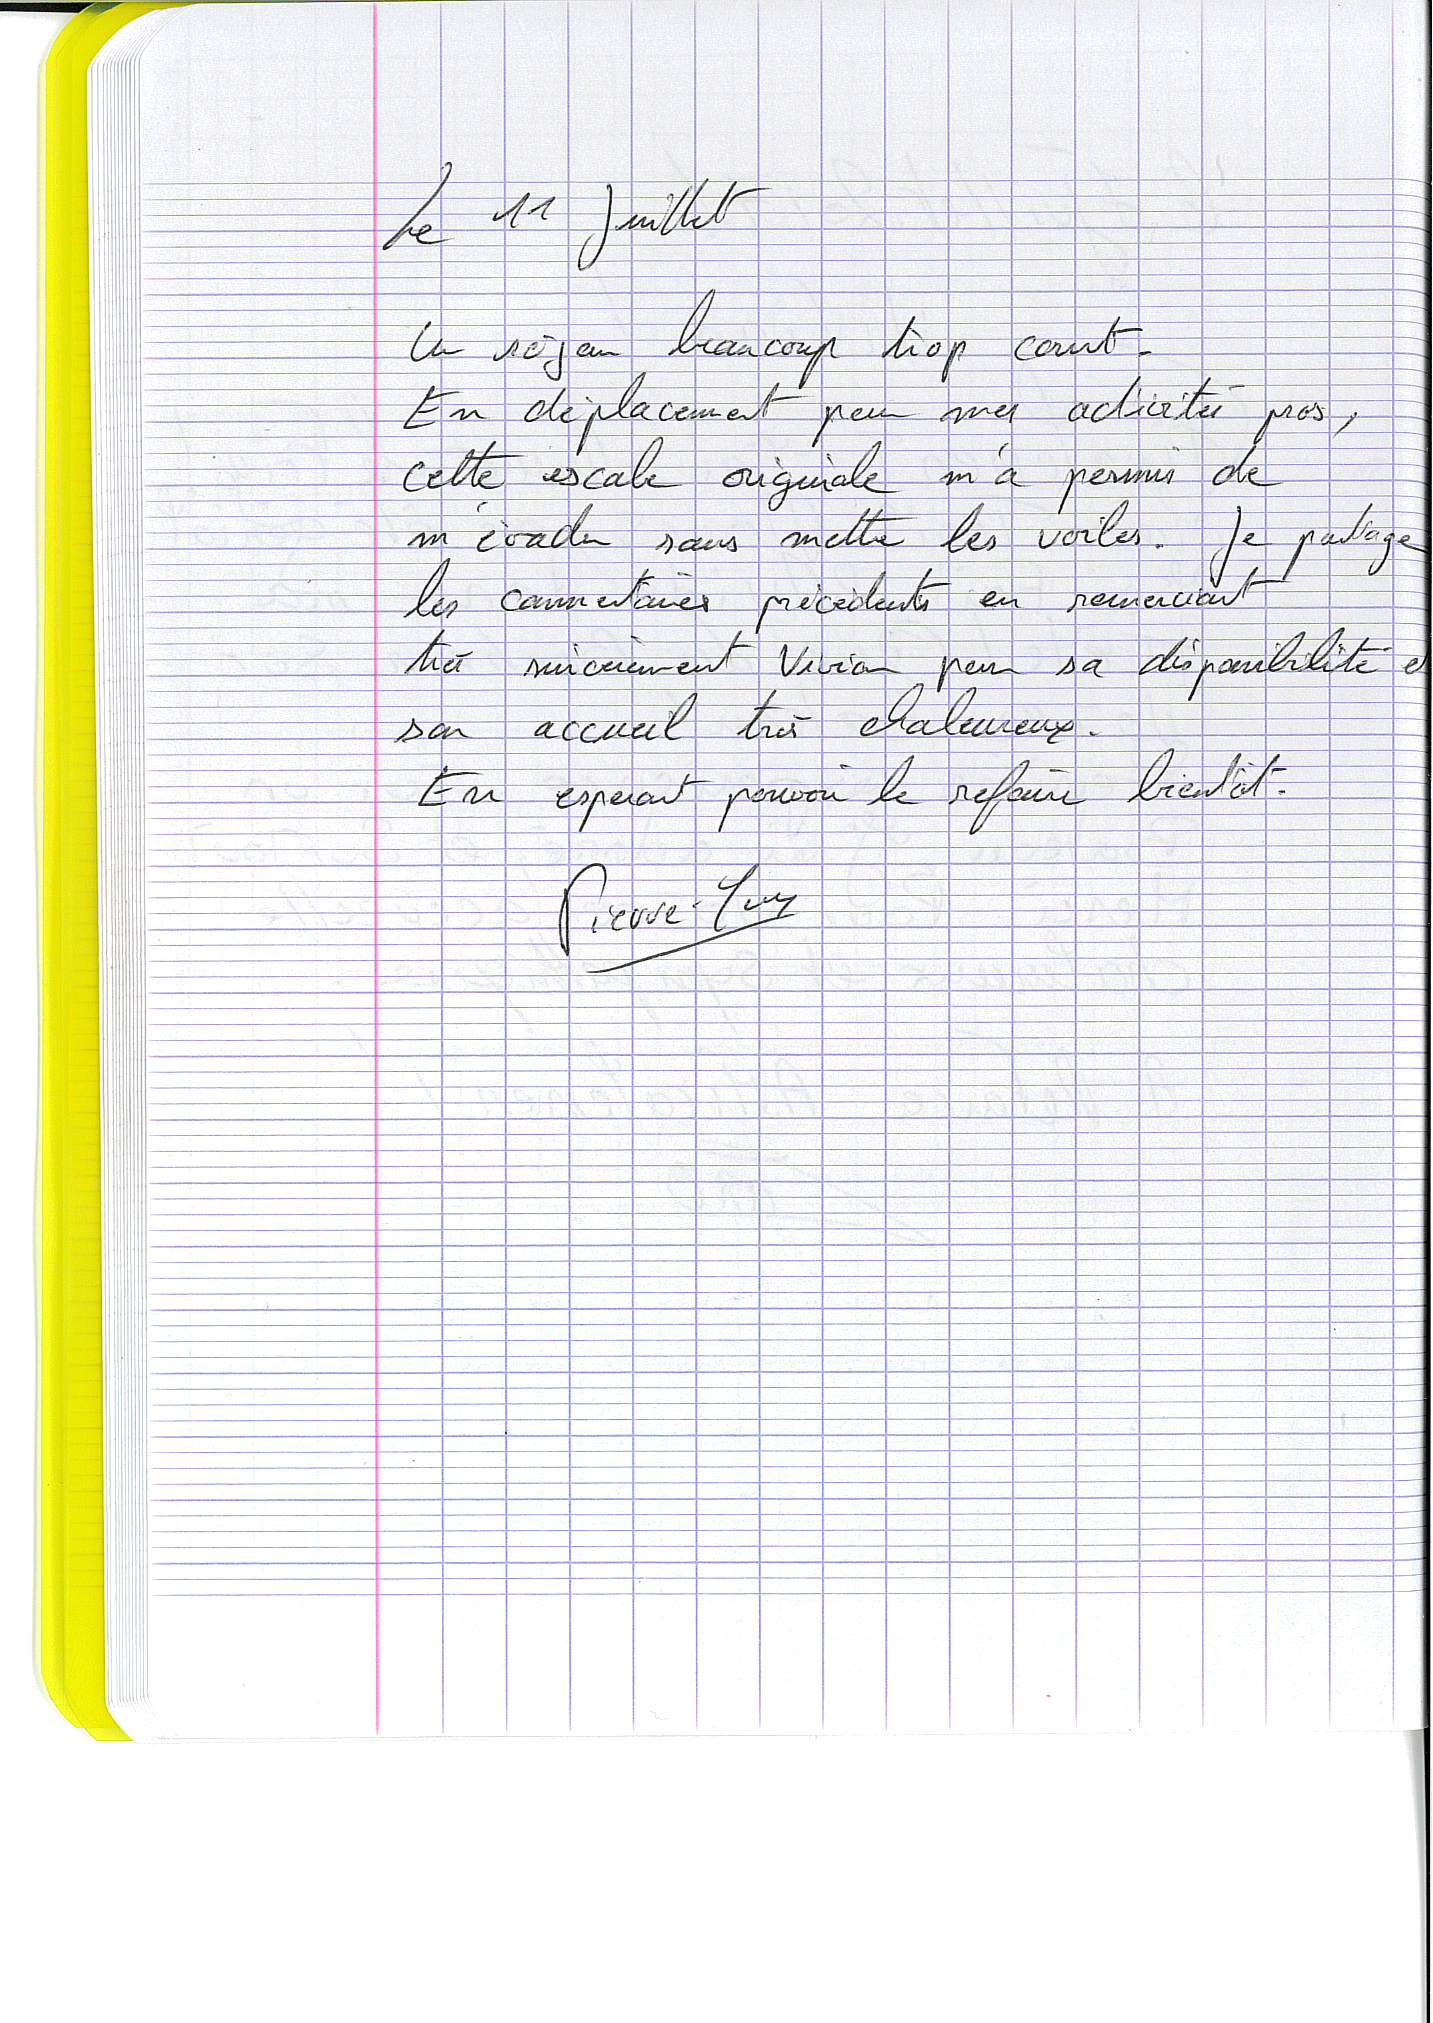 Le 11 Juillet
Un séjour beaucoup trop court.
En déplacement pour mes activités pros,
cette escale originale m'a permis de
m'évader sans mettre les voiles. Je partage
les commentaires précédents en remerciant
très sincèrement Vivian pour sa disponibilité et
son accueil très chaleureux.
En esperant pouvoir le refaire bientôt.
Pierre-Guy